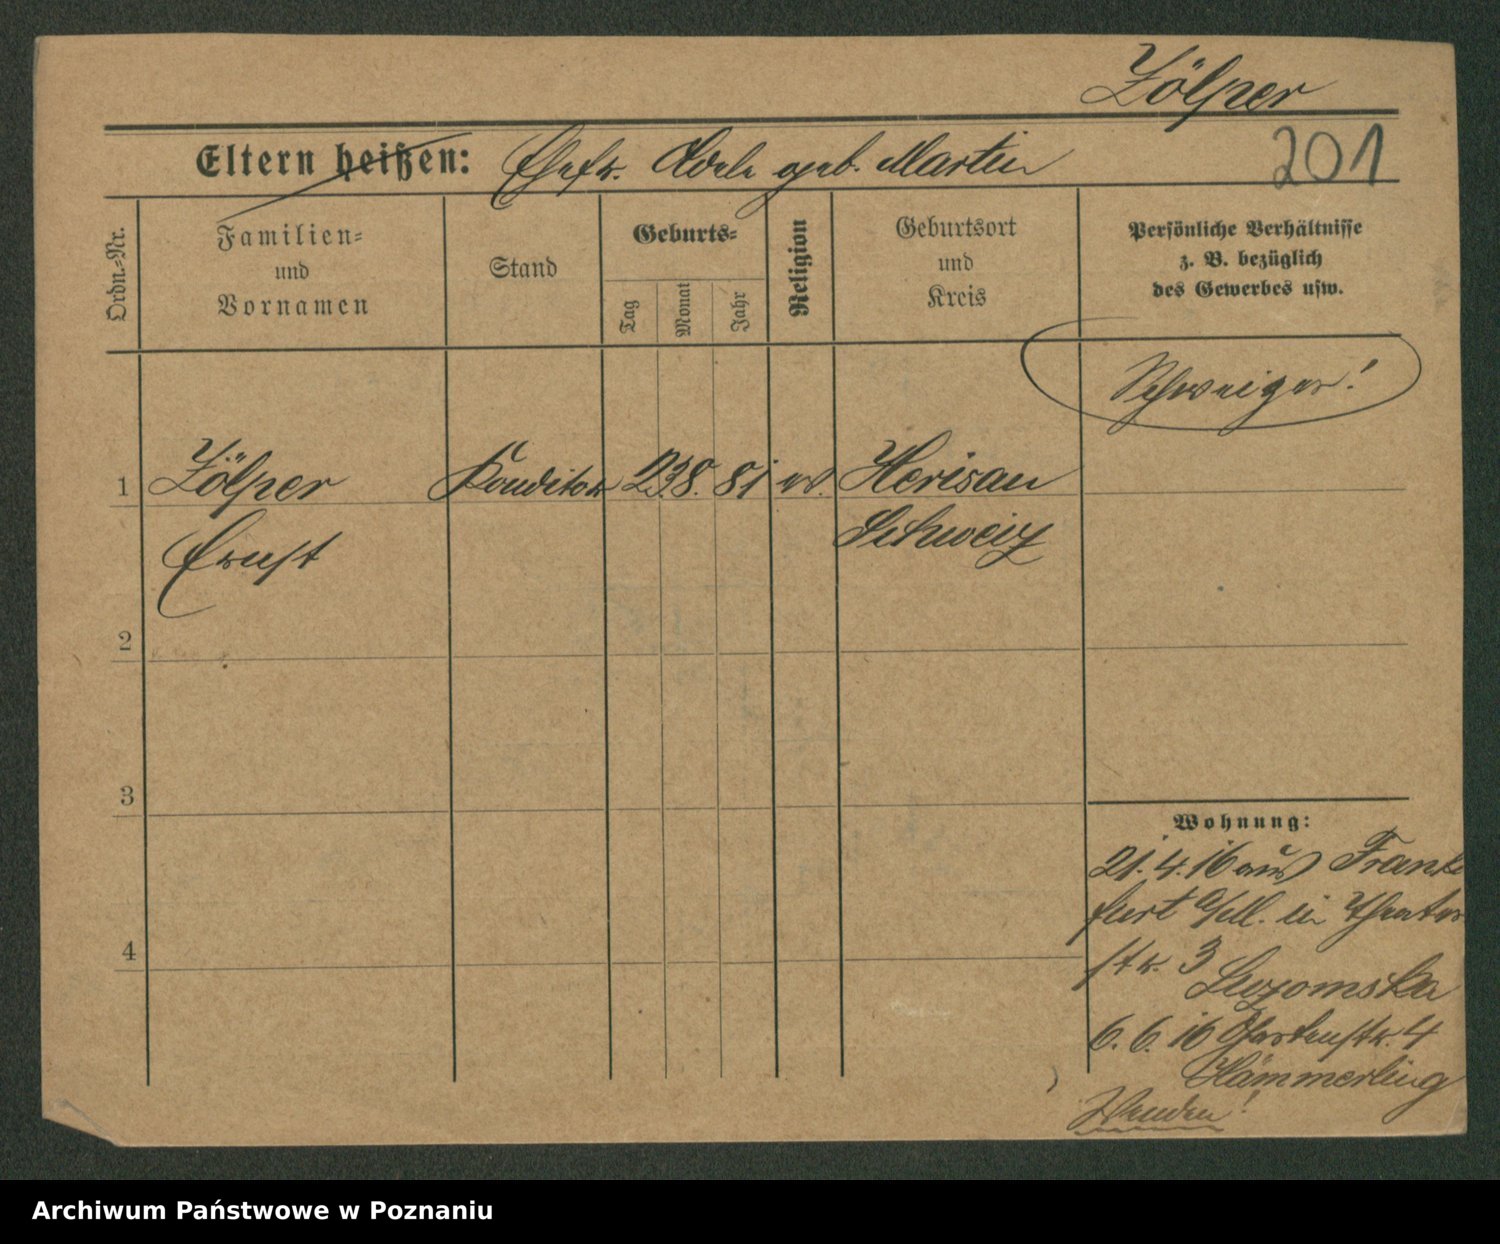 Zölper
201
Eltern heißen: Ehefr. Adele geb. Martin
Ordn.-Nr.
Familien-
und
Vornamen
Stand
Geburts-
Tag
Monat
Jahr
Religion
Geburtsort
und
Kreis
Persönliche Verhältnisse
z. B. bezüglich
des Gewerbes usw.
Schweizer!
1 Zölper Konditor 23. 8. 81 ev. Herisau
Ernst Schweiz
2
3
4
Wohnung:
21. 4. 16 aus Frank
furt a/M. in Theater
str. 3
6. 6. 16 Gartenstr. 4
Hämmerling
Wenden!
Archiwum Państwowe w Poznaniu